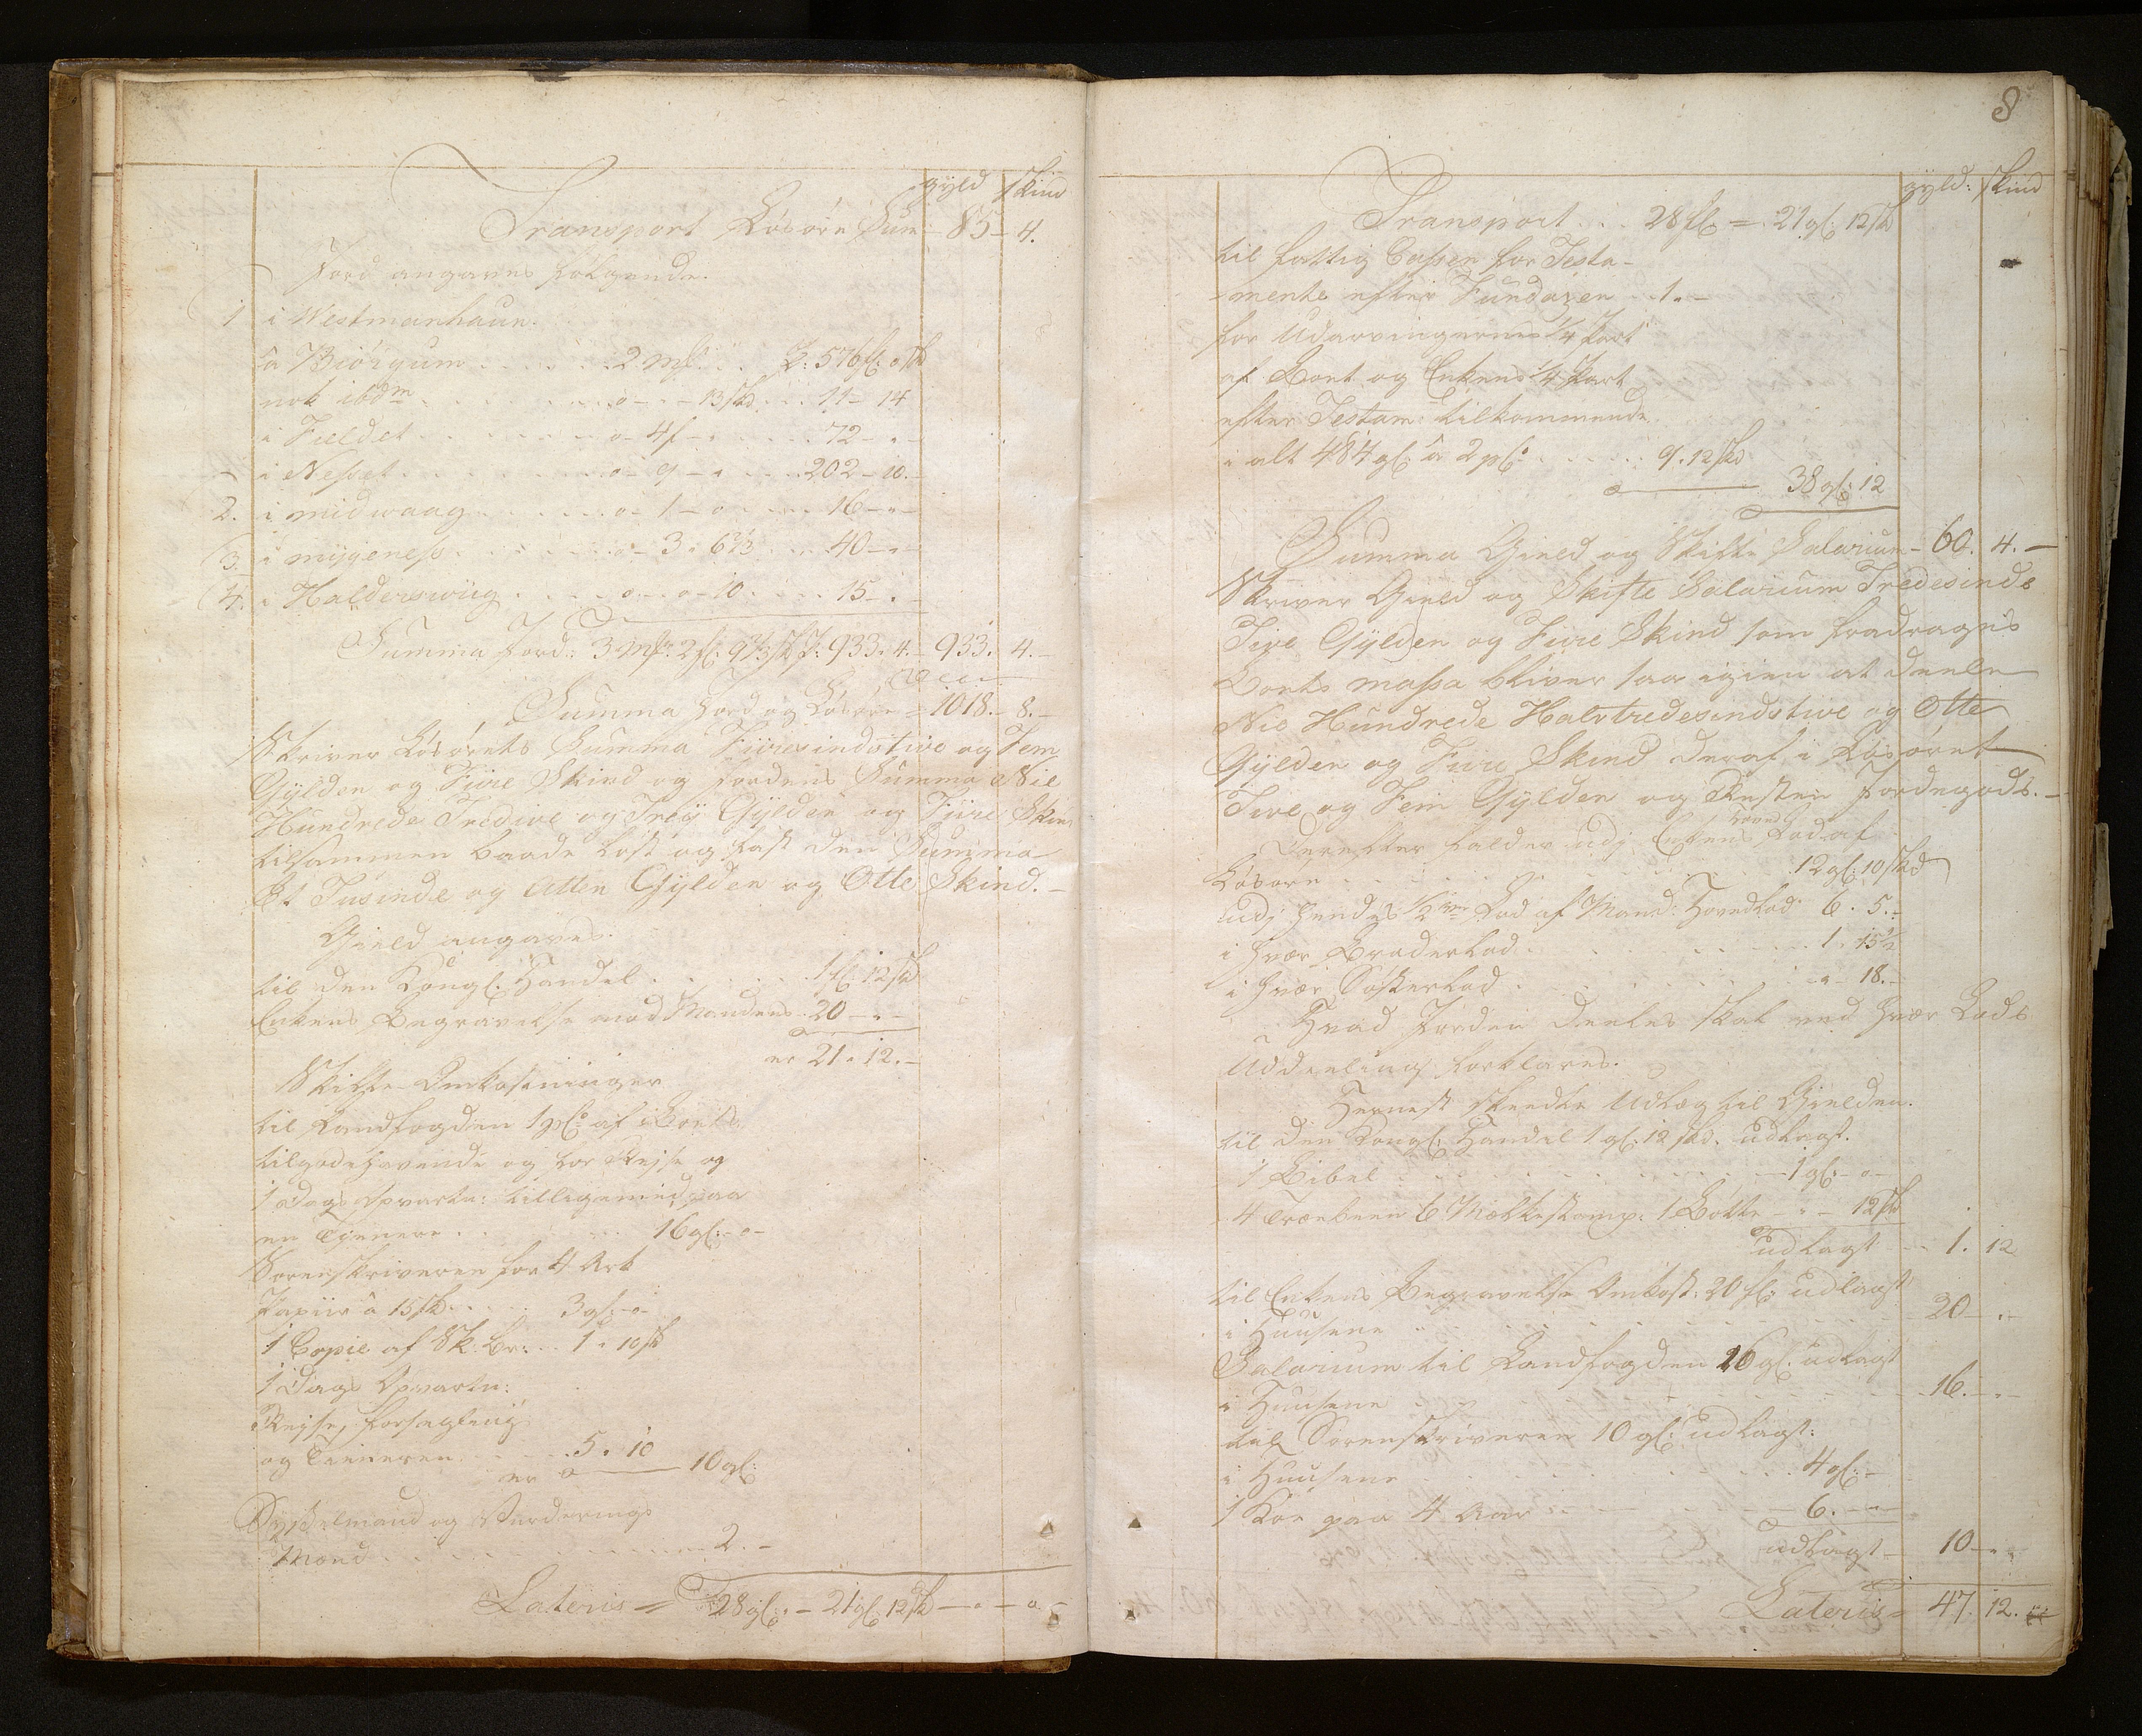 gyld skind
Transport Løsøre Sum - 85 - 4.
Jord angaves følgende.
1 i Westmanhaun.
a Biörgum . . . . . 2 mk . . . 576 gl: o sk
nok ibdm . . . . o - - 13 skd . . . 11 - 14
i Fieldet . . . . . . o - 4 f - . . . . 72 - " -
i Nesset . . . . . . . o - 9 - " . . . . 202 - 10. -
2. i midwaag . . . . . . o - 1 - o . . . . 16 - " -
3. i mygeness . . . . . o - 3 " 6 2/3 . . . 40 - " -
4. i Halderswiig . . . . o - o - 10 . . . . 15 - " -
Summa Jord: 3 mk: 2 gl: 9 1/3 sk : 933. 4. - 933. 4. -
Summa Jord og Løsøre = 1018. - 8. -
Skriver Løsørets Summa Fiiresindstive og Fem
Gylden og Fiire Skind og Jordens Summa Nie
Hundrede Tredive og Trey Gylden og Fiire Skin
tilsammen baade løst og fast den Summa
Et Tusinde og Atten Gylden og Otte Skind. -
Gield angaves.
til den Kongl. Handel . . . . . 1 gl: 12 sk
Enkens Begravelse mod Mandens . 20 - " -
er 21 " 12. -
Skifte Omkostninger
til Landfogden 1 pCt af Boets
tilgodehavende og for Rejse og
1 Dags Opvartn: tilligemed paa
en Tienere . . . . . 16 gl: - o -
Sorenskriveren for 4 Ark
Papiir a 15 sk . . . . 3 gl - o -
1 Copie af Sk. br: . . 1 " 10 sk
1 Dags Opvartn:
Rejse, forsegling
og Tieneren . . . . . 5 " 10
er 10 gl:
Sysselmand og Vurderings
Mænd . . . . . . . . . . 2. -
Lateris = 28 gl: " - 21 gl: 12 sk - " - o. -
8
gyld: skind
Transport . . 28 gl: = 21 gl: 12 sk
til fattig Cassen for Testa-
-mente efter Fundazen . . 1. -
for Udarvingernes 1/4 Part
af Boet og Enkens 1/4 Part
efter Testam: tilkommende
i alt 484 gl: a 2 pCt . . . . . 9. 12 skd
38 gl: 12
Summa Gield og Skifte Salarium - 60. 4. -
Skriver Gield og Skifte Salarium Tredesinds
Tive Gylden og Fiire Skind som fradragen
Boets massa bliver saa igien at deele
Nie Hundrede Halvtredesindstive og Otte
Gylden og Fiire Skind deraf i Løsøret
Tive og Fem Gylden og Resten Jordegods. -
Derefter falder udj Enkens Hoved Lod af
Løsøre . . . . . . . . . . . 12 gl: 10 skd
udj hendes 1/2 Lod af Mand: Hovedlod 6. 5. -
i hver Broderlod . . . . . . . . 1. 15 1/2
i hver Søsterlod . . . . . . . . - " - 18. -
Hvad Jorden deeles skal ved hver Lods
Uddeeling forklares.
Hernest skeedte Udlæg til Gielden.
til den Kongl: Handel 1 gl: 12 skd. udlagt.
1 Bibel . . . . . . . . . . . . - 1 gl: - o -
4 6 Melkestamp: 1 Bøtte - " - 12 sk
udlagt - - 1. 12
til Enkens Begravelse Omkost: 20 gl: udlagt
i Huusene . . . . . . . . . . . . 20 - " -
Salarium til Landfogden 16 gl: udlagt
i Huusene . . . . . . . . . . . . 16. - " -
til Sorenskriveren 10 gl: udlagt:
i Huusene . . . . . . . . . . . . 4 gl: -
1 Koe paa 4 Aar . . . . . . . 6. - " -
udlagt - 10 - " -
Lateris = 47. 12.